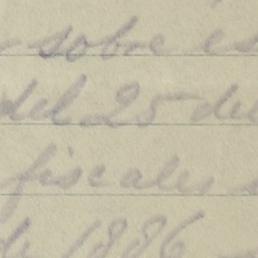 sobre es
del 25 de
fiscales
de 1886